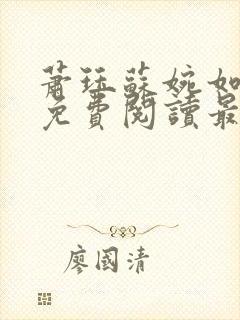 蕭珏蘇婉如
免費閱讀最
廖國清